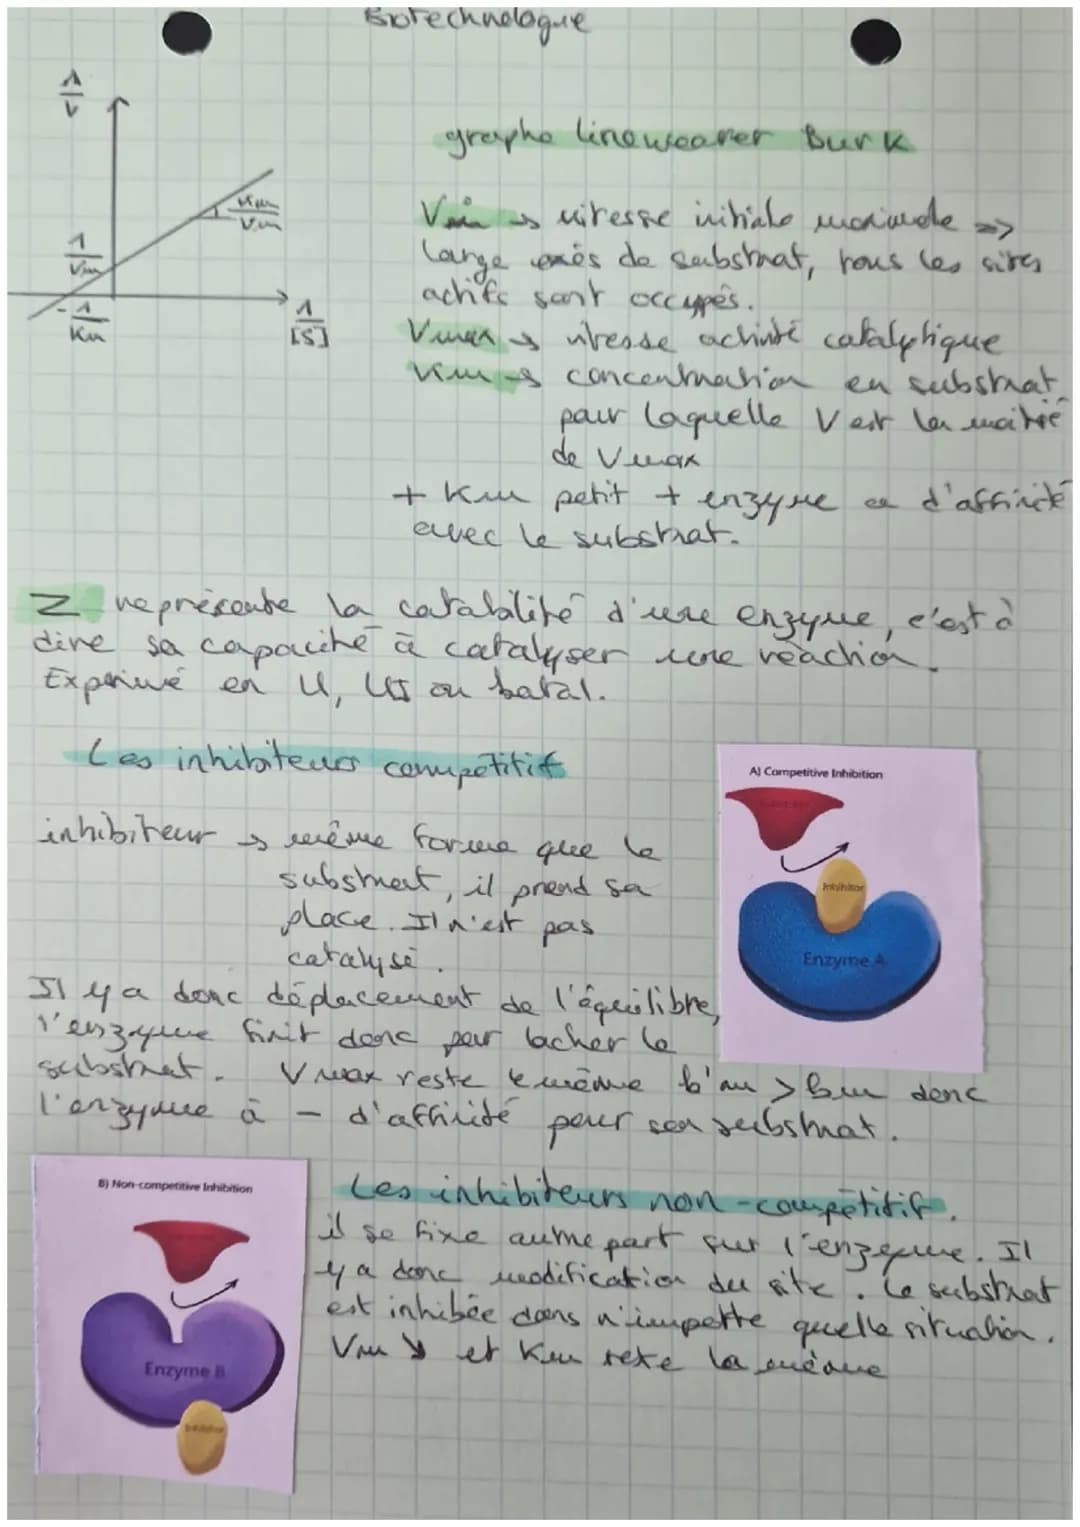 Biotechnologue
1/V
graphe lineweaver Burk
Km/Vm
1/Vm
-1/Km
1/[S]
Vmi → vitesse initiale maximale =>
large excès de substrat, tous les sites
actifs sont occupés.
Vmax → vitesse activité catalytique
Km → concentration en substrat
pour laquelle V est la moitié
de Vmax
+ Km petit + enzyme a d'affinité
avec le substrat.
Z représente la catabilité d'une enzyme, c'est à
dire sa capacité à catalyser une réaction.
Exprimé en U, UI ou katal.
Les inhibiteurs compétitif
A) Competitive Inhibition
Inhibitor
Enzyme A
inhibiteur → même forme que le
substrat, il prend sa
place. Il n'est pas
catalysé.
Il y a donc déplacement de l'équilibre,
l'enzyme finit donc par lacher le
substrat. Vmax reste le même k'm > km donc
l'enzyme à - d'affinité pour son substrat.
B) Non-competitive Inhibition
Enzyme B
Inhibitor
Les inhibiteurs non-compétitif.
il se fixe autre part sur l'enzyme. Il
y a donc modification du site. Le substrat
est inhibée dans n'importe quelle situation.
Vm ↘ et Km reste la même